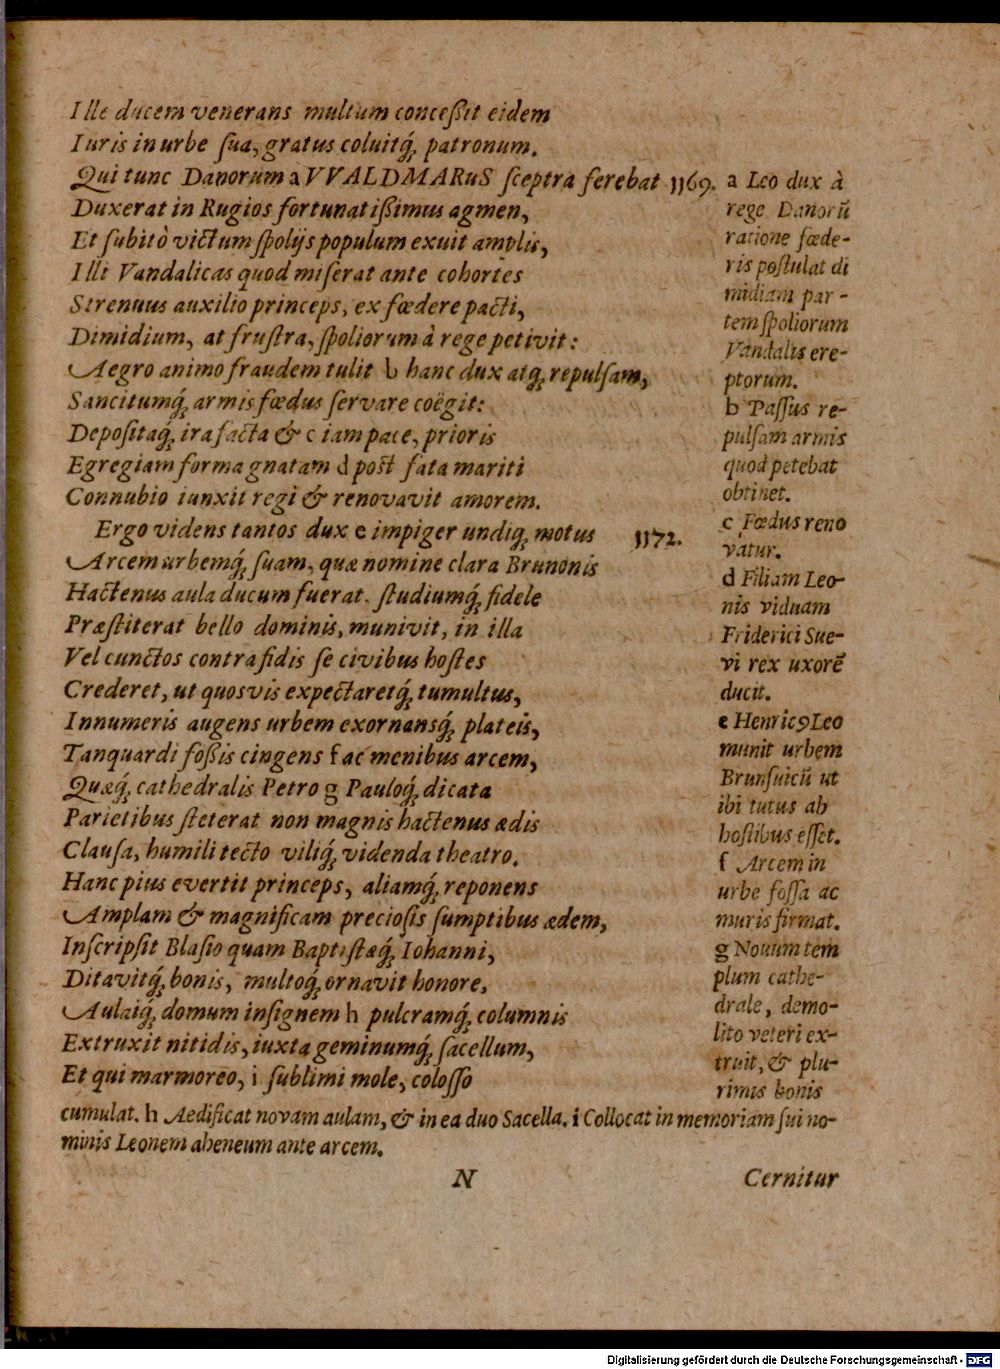 Ille ducem venerans multum conceßit eidem
Iuris in urbe ſua, gratus coluitq́; patronum.
Qui tunc Danorum a VVALDMARuS ſceptra ferebat 1169.
Duxerat in Rugios fortunatißimus agmen,
Et ſubitò victum ſpolijs populum exuit amplis,
Illi Vandalicas quod miſerat ante cohortes
Strenuus auxilio princeps, ex fœdere pacti,
Dimidium, at fruſtra, ſpoliorum à rege petivit:
Aegro animo fraudem tulit b hanc dux atq; repulſam,
Sancitumq́; armis fœdus ſervare coëgit:
Depoſitaq́; ira facta & c iam pace, prioris
Egregiam forma gnatam d poſt fata mariti
Connubio iunxit regi & renovavit amorem.
Ergo videns tantos dux e impiger undiq; motus 1172.
Arcem urbemq́; ſuam, quæ nomine clara Brunonis
Hactenus aula ducum fuerat. ſtudiumq́; fidele
Præſtiterat bello dominis, munivit, in illa
Vel cunctos contra fidis ſe civibus hoſtes
Crederet, ut quosvis expectaretq́; tumultus,
Innumeris augens urbem exornansq́; plateis,
Tanquardi foßis cingens f ac menibus arcem,
Quæq́; cathedralis Petro g Pauloq́; dicata
Parietibus ſteterat non magnis hactenus ædis
Clauſa, humili tecto viliq́; videnda theatro.
Hanc pius evertit princeps, aliamq́; reponens
Amplam & magnificam precioſis ſumptibus ædem,
Inſcripſit Blaſio quam Baptiſtæq́; Iohanni,
Ditavitq́; bonis, multoq́; ornavit honore,
Aulaiq́; domum inſignem h pulcramq́; columnis
Extruxit nitidis, iuxta geminumq́; ſacellum,
Et qui marmoreo, i ſublimi mole, coloſſo
a Leo dux à
rege Danorū
ratione fœde-
ris poſtulat di
midiam par-
tem ſpoliorum
Vandalis ere-
ptorum.
b Paſſus re-
pulſam armis
quod petebat
obtinet.
c Fœdus reno
vatur.
d Filiam Leo-
nis viduam
Friderici Sue-
vi rex uxorē
ducit.
e Henricꝰ Leo
munit urbem
Brunſuicū ut
ibi tutus ab
hoſtibus eſſet.
f Arcem in
urbe foſſa ac
muris firmat.
g Nouum tem
plum cathe-
drale, demo-
lito veteri ex-
truit, & plu-
rimis bonis
cumulat. h Aedificat novam aulam, & in ea duo Sacella. i Collocat in memoriam ſui no-
minis Leonem aheneum ante arcem.
N Cernitur
Digitalisierung gefördert durch die Deutsche Forschungsgemeinschaft - DFG